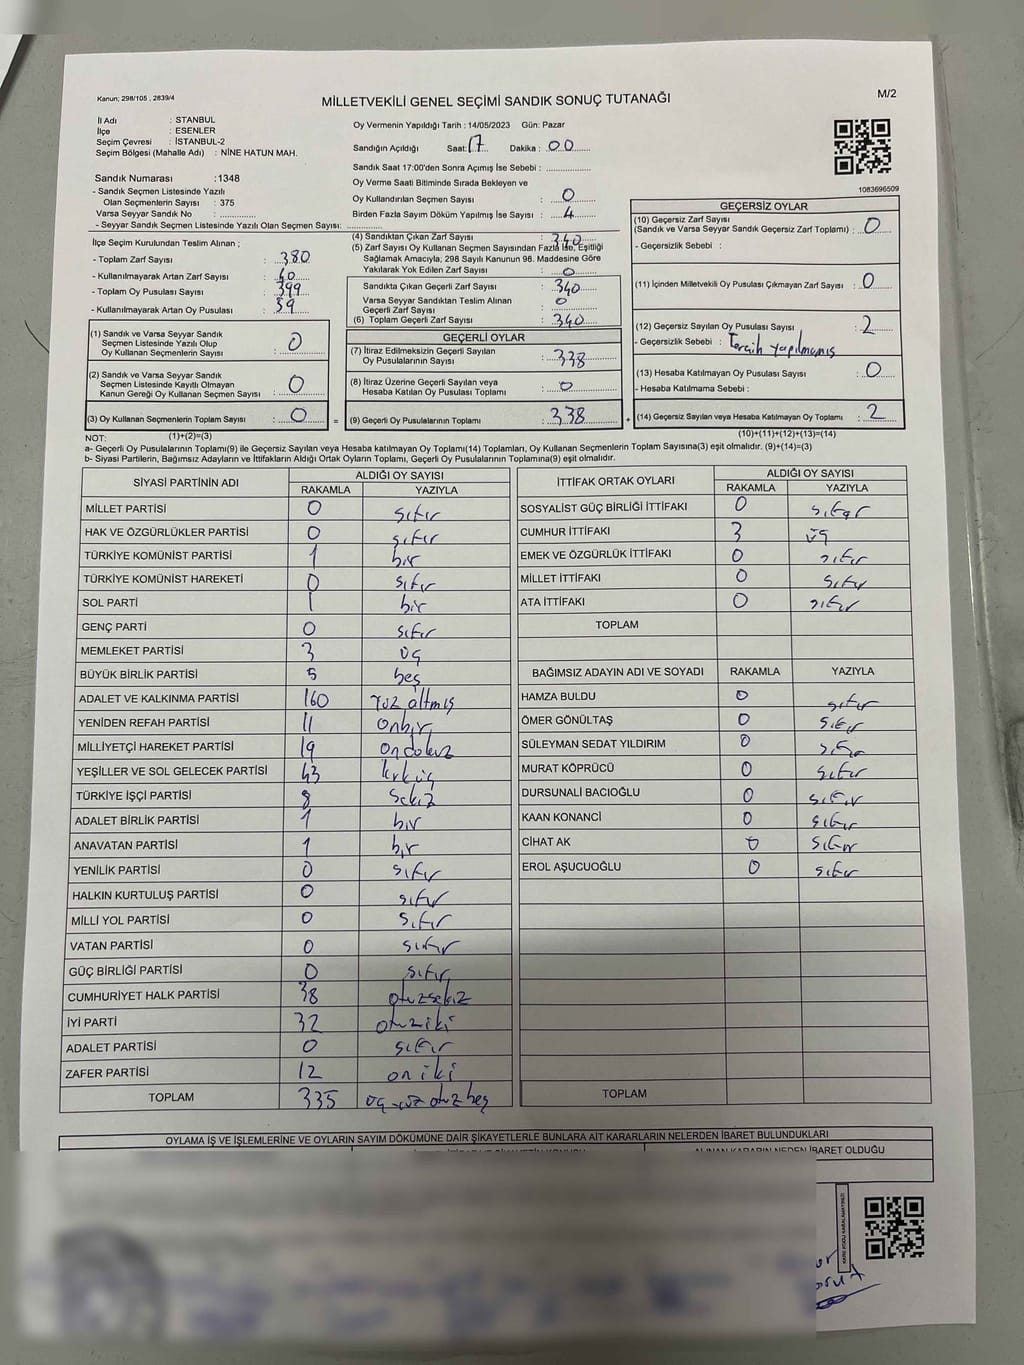 Kanun; 298/105 , 2839/4
MİLLETVEKİLİ GENEL SEÇİMİ SANDIK SONUÇ TUTANAĞI
M/2
İl Adı : STANBUL
İlçe : ESENLER
Seçim Çevresi : İSTANBUL-2
Seçim Bölgesi (Mahalle Adı) : NİNE HATUN MAH.
Sandık Numarası :1348
- Sandık Seçmen Listesinde Yazılı
Olan Seçmenlerin Sayısı : 375
Varsa Seyyar Sandık No :
- Seyyar Sandık Seçmen Listesinde Yazılı Olan Seçmen Sayısı:
İlçe Seçim Kurulundan Teslim Alınan ;
- Toplam Zarf Sayısı : 380
- Kullanılmayarak Artan Zarf Sayısı : 40
- Toplam Oy Pusulası Sayısı : 399
- Kullanılmayarak Artan Oy Pusulası : 59
Oy Vermenin Yapıldığı Tarih : 14/05/2023 Gün: Pazar
Sandığın Açıldığı Saat: 17 Dakika : 00
Sandık Saat 17:00'den Sonra Açımış İse Sebebi :
Oy Verme Saati Bitiminde Sırada Bekleyen ve
Oy Kullandırılan Seçmen Sayısı : 0
Birden Fazla Sayım Döküm Yapılmış İse Sayısı : 4
(4) Sandıktan Çıkan Zarf Sayısı : 340
(5) Zarf Sayısı Oy Kullanan Seçmen Sayısından Fazla İse, Eşitliği
Sağlamak Amacıyla; 298 Sayılı Kanunun 98. Maddesine Göre
Yakılarak Yok Edilen Zarf Sayısı : 0
Sandıkta Çıkan Geçerli Zarf Sayısı : 340
Varsa Seyyar Sandıktan Teslim Alınan
Geçerli Zarf Sayısı : 0
(6) Toplam Geçerli Zarf Sayısı : 340
1083696509
(1) Sandık ve Varsa Seyyar Sandık
Seçmen Listesinde Yazılı Olup
Oy Kullanan Seçmenlerin Sayısı : 0
(2) Sandık ve Varsa Seyyar Sandık
Seçmen Listesinde Kayıtlı Olmayan
Kanun Gereği Oy Kullanan Seçmen Sayısı : 0
(3) Oy Kullanan Seçmenlerin Toplam Sayısı : 0 =
GEÇERLİ OYLAR
(7) İtiraz Edilmeksizin Geçerli Sayılan
Oy Pusulalarının Sayısı : 338
(8) İtiraz Üzerine Geçerli Sayılan veya
Hesaba Katılan Oy Pusulası Toplamı : 0
(9) Geçerli Oy Pusulalarının Toplamı : 338 +
GEÇERSİZ OYLAR
(10) Geçersiz Zarf Sayısı
(Sandık ve Varsa Seyyar Sandık Geçersiz Zarf Toplamı) : 0
- Geçersizlik Sebebi :
(11) İçinden Milletvekili Oy Pusulası Çıkmayan Zarf Sayısı : 0
(12) Geçersiz Sayılan Oy Pusulası Sayısı : 2
- Geçersizlik Sebebi : Tercih yapılmamış
(13) Hesaba Katılmayan Oy Pusulası Sayısı : 0
- Hesaba Katılmama Sebebi :
(14) Geçersiz Sayılan veya Hesaba Katılmayan Oy Toplamı : 2
NOT: (1)+(2)=(3)
(10)+(11)+(12)+(13)=(14)
a- Geçerli Oy Pusulalarının Toplamı(9) ile Geçersiz Sayılan veya Hesaba Katılmayan Oy Toplamı(14) Toplamları, Oy Kullanan Seçmenlerin Toplam Sayısına(3) eşit olmalıdır. (9)+(14)=(3)
b- Siyasi Partilerin, Bağımsız Adayların ve İttifakların Aldığı Ortak Oyların Toplamı, Geçerli Oy Pusulalarının Toplamına(9) eşit olmalıdır.
SİYASİ PARTİNİN ADI ALDIĞI OY SAYISI
RAKAMLA YAZIYLA
MİLLET PARTİSİ 0 sıfır
HAK VE ÖZGÜRLÜKLER PARTİSİ 0 sıfır
TÜRKİYE KOMÜNİST PARTİSİ 1 bir
TÜRKİYE KOMÜNİST HAREKETİ 0 sıfır
SOL PARTİ 1 bir
GENÇ PARTİ 0 sıfır
MEMLEKET PARTİSİ 3 üç
BÜYÜK BİRLİK PARTİSİ 5 beş
ADALET VE KALKINMA PARTİSİ 160 Yüz altmış
YENİDEN REFAH PARTİSİ 11 onbir
MİLLİYETÇİ HAREKET PARTİSİ 19 ondokuz
YEŞİLLER VE SOL GELECEK PARTİSİ 43 kırküç
TÜRKİYE İŞÇİ PARTİSİ 8 sekiz
ADALET BİRLİK PARTİSİ 1 bir
ANAVATAN PARTİSİ 1 bir
YENİLİK PARTİSİ 0 sıfır
HALKIN KURTULUŞ PARTİSİ 0 sıfır
MİLLİ YOL PARTİSİ 0 sıfır
VATAN PARTİSİ 0 sıfır
GÜÇ BİRLİĞİ PARTİSİ 0 sıfır
CUMHURİYET HALK PARTİSİ 38 otuzsekiz
İYİ PARTİ 32 otuziki
ADALET PARTİSİ 0 sıfır
ZAFER PARTİSİ 12 oniki
TOPLAM 335 üç yüz otuz beş
İTTİFAK ORTAK OYLARI ALDIĞI OY SAYISI
RAKAMLA YAZIYLA
SOSYALİST GÜÇ BİRLİĞİ İTTİFAKI 0 sıfır
CUMHUR İTTİFAKI 3 üç
EMEK VE ÖZGÜRLÜK İTTİFAKI 0 sıfır
MİLLET İTTİFAKI 0 sıfır
ATA İTTİFAKI 0 sıfır
TOPLAM
BAĞIMSIZ ADAYIN ADI VE SOYADI RAKAMLA YAZIYLA
HAMZA BULDU 0 sıfır
ÖMER GÖNÜLTAŞ 0 sıfır
SÜLEYMAN SEDAT YILDIRIM 0 sıfır
MURAT KÖPRÜCÜ 0 sıfır
DURSUNALİ BACIOĞLU 0 sıfır
KAAN KONANCİ 0 sıfır
CİHAT AK 0 sıfır
EROL AŞUCUOĞLU 0 sıfır
TOPLAM
OYLAMA İŞ VE İŞLEMLERİNE VE OYLARIN SAYIM DÖKÜMÜNE DAİR ŞİKAYETLERLE BUNLARA AİT KARARLARIN NELERDEN İBARET BULUNDUKLARI
ALINAN KARARIN NEDEN İBARET OLDUĞU